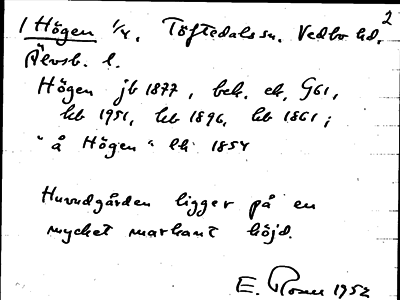 2
1 Högen 1/4. Töftedals sn. Vedbo hd.
Älvsb. l.
Högen jb 1877, bek. ek, G61,
hb 1951, hb 1896, hb 1861;
"å Högen" lk 1854
Huvudgården ligger på en
mycket markant höjd.
E. Rosen 1952